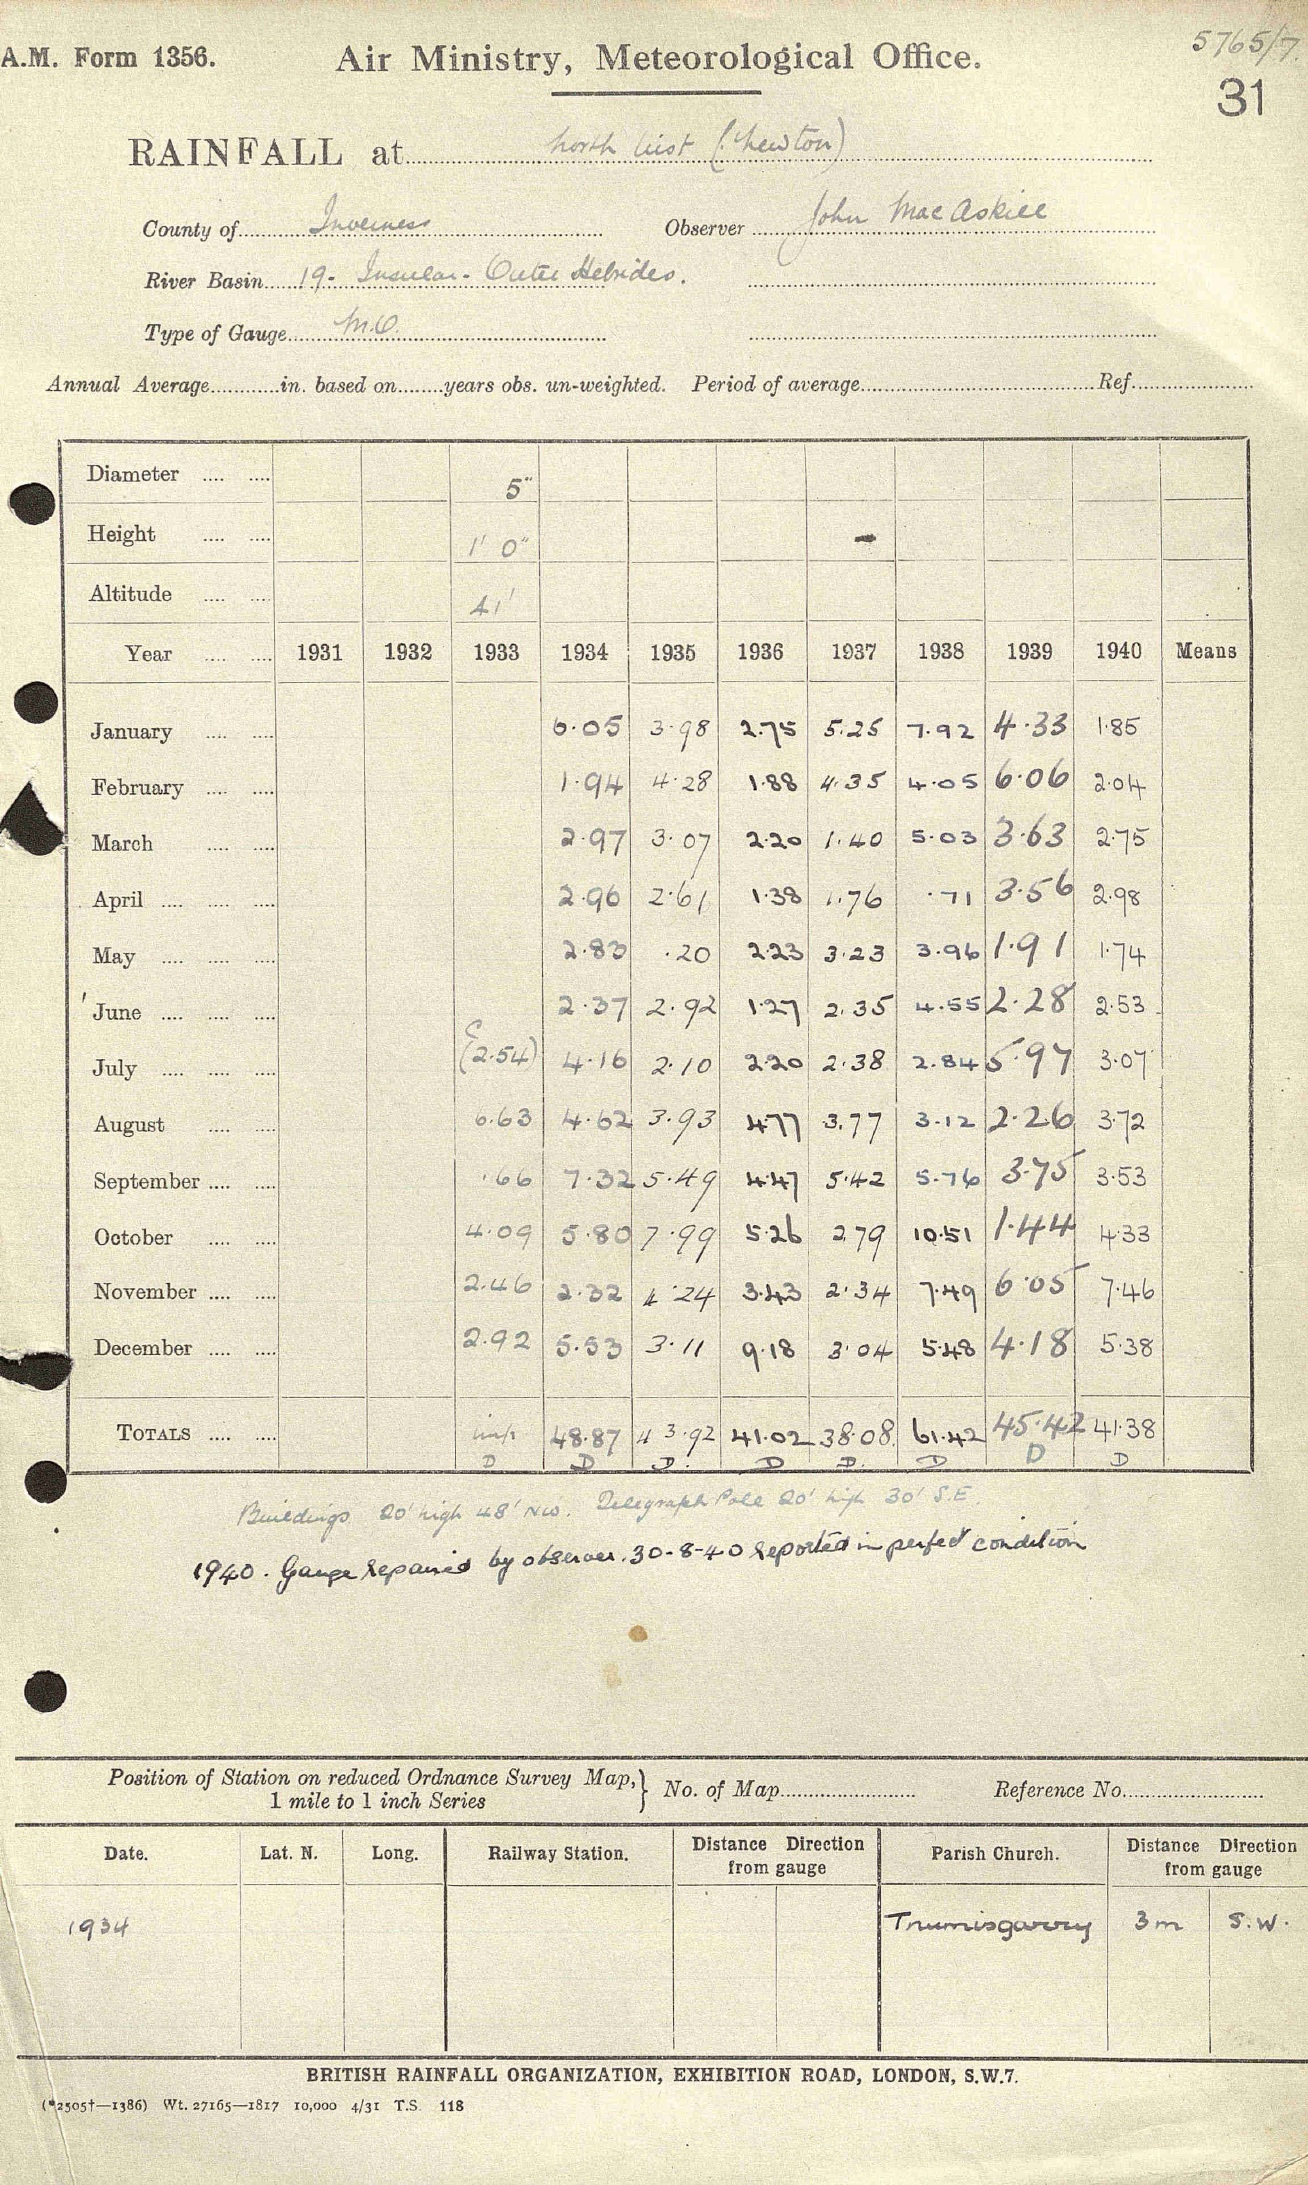 5765/7.
A.M. Form 1356. Air Ministry, Meteorological Office.
31
RAINFALL at North Uist (Newton)
County of Inverness Observer John MacAskill
River Basin 19 - Insular - Outer Hebrides.
Type of Gauge M.O.
Annual Average in. based on years obs. un-weighted. Period of average Ref.
Diameter 5"
Height 1' 0" -
Altitude 41'
Year 1931 1932 1933 1934 1935 1936 1937 1938 1939 1940 Means
January 6.05 3.98 2.75 5.25 7.92 4.33 1.85
February 1.94 4.28 1.88 4.35 4.05 6.06 2.04
March 2.97 3.07 2.20 1.40 5.03 3.63 2.75
April 2.96 2.61 1.38 1.76 .71 3.56 2.98
May 2.83 .20 2.23 3.23 3.96 1.91 1.74
June 2.37 2.92 1.27 2.35 4.55 2.28 2.53
July (2.54) 4.16 2.10 2.20 2.38 2.84 5.97 3.07
August 6.63 4.62 3.93 4.77 3.77 3.12 2.26 3.72
September .66 7.32 5.49 4.47 5.42 5.76 3.75 3.53
October 4.09 5.80 7.99 5.26 2.79 10.51 1.44 4.33
November 2.46 2.32 4.24 3.43 2.34 7.49 6.05 7.46
December 2.92 5.53 3.11 9.18 3.04 5.48 4.18 5.38
TOTALS imp 48.87 43.92 41.02 38.08 61.42 45.42 41.38
D D D. D D. D D D
Buildings 20' high 48' NW. Telegraph Pole 20' high 30' S.E
1940. Gauge repaired by observer. 30-8-40 reported in perfect condition
Position of Station on reduced Ordnance Survey Map,} No. of Map Reference No.
1 mile to 1 inch Series
Date. Lat. N. Long. Railway Station. Distance Direction from gauge Parish Church. Distance Direction from gauge
1934 Trumisgarry 3m S.W.
BRITISH RAINFALL ORGANIZATION, EXHIBITION ROAD, LONDON, S.W.7.
(*2505†—1386) Wt. 27165—1817 10,000 4/31 T.S. 118